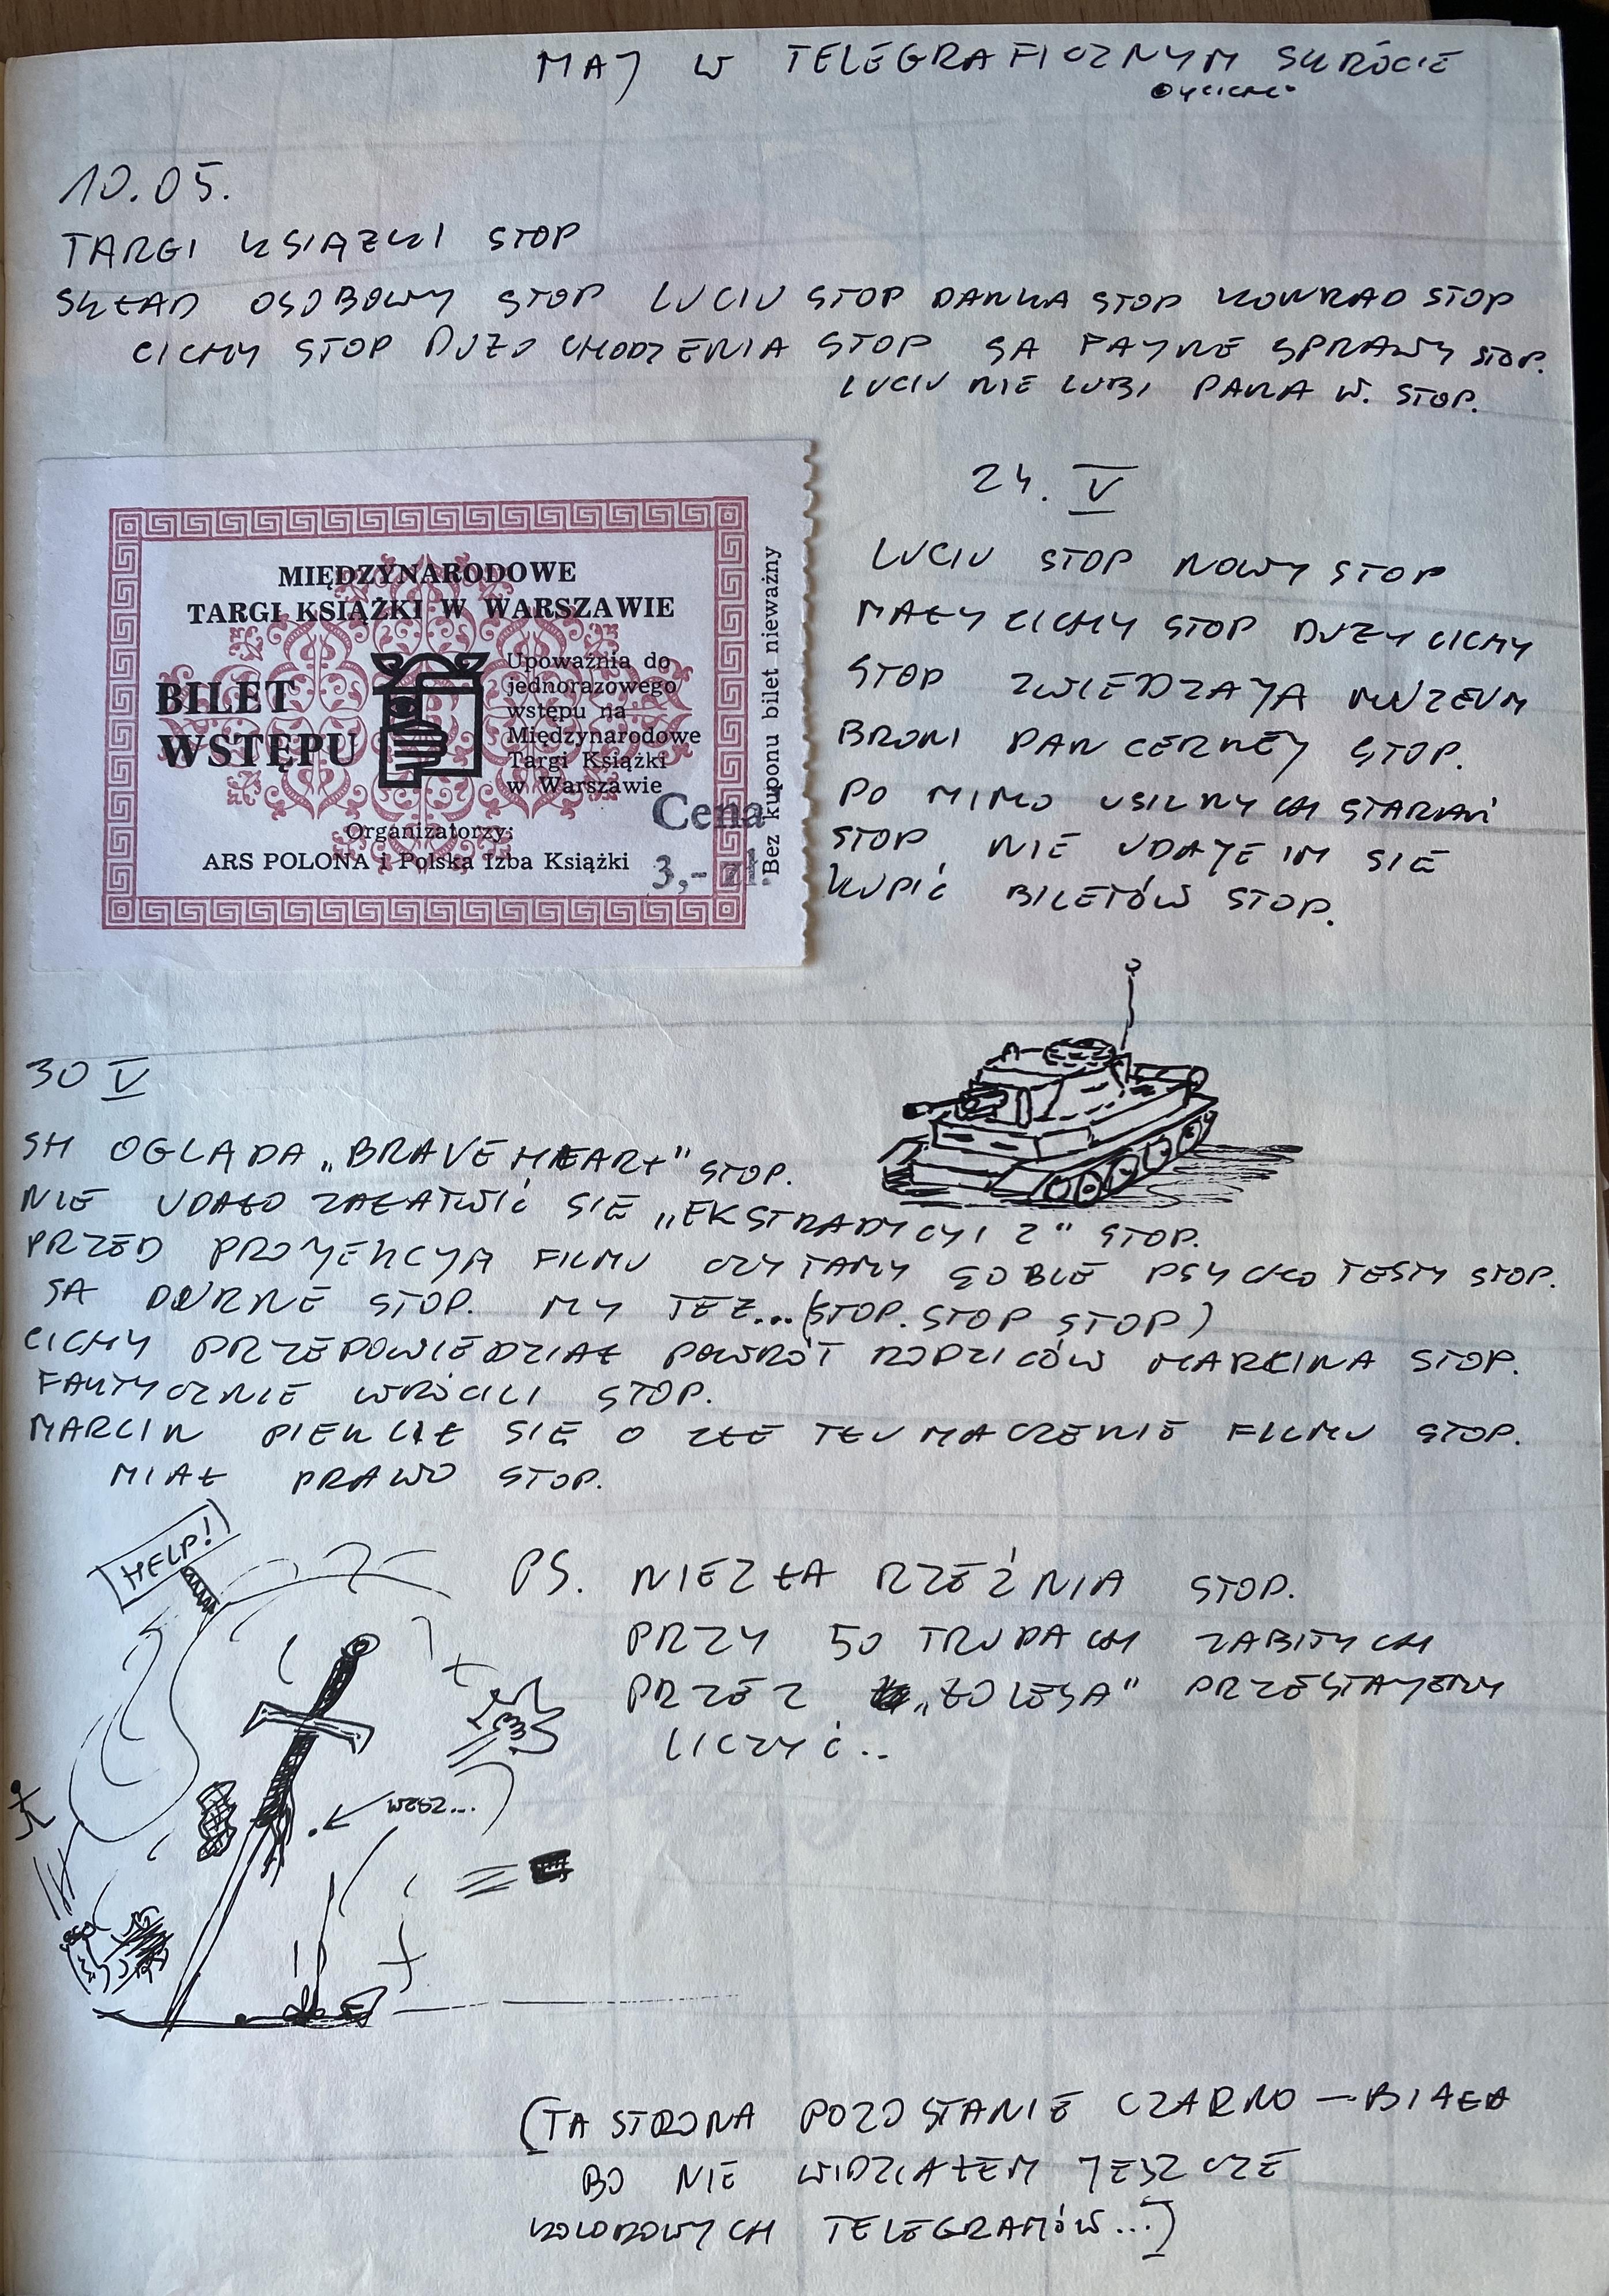 MAJ W TELEGRAFICZNYM SKRÓCIE
10.05.
TARGI KSIĄZKI STOP
SKŁAD OSOBOWY STOP LUCIU STOP DANKA STOP KONRAD STOP
CICHY STOP DUZO CHODZENIA STOP SA FAJNE SPRAWY STOP.
LUCIU NIE LUBI PANA W. STOP.
MIĘDZYNARODOWE
TARGI KSIĄŻKI W WARSZAWIE
BILET
WSTĘPU
Upoważnia do
jednorazowego
wstępu na
Międzynarodowe
Targi Książki
w Warszawie
Organizatorzy:
ARS POLONA i Polska Izba Książki
Cena
3,- zł.
Bez kuponu bilet nieważny
24. V
LUCIU STOP NOWY STOP
MAŁY CICHY STOP DUZY CICHY
STOP ZWIEDZAJA MUZEUM
BRONI PANCERNEJ STOP.
PO MIMO USILNYCH STARAŃ
STOP, NIE UDAJE IM SIE
KUPIĆ BILETÓW STOP.
30 V
SH OGLADA „BRAVE HEART" STOP.
NIE UDAŁO ZAŁATWIĆ SIE „EKSTRADYCYI 2" STOP.
PRZED PROJEKCJA FILMU CZYTAMY SOBIE PSYCHO TESTY STOP.
SA DURNE STOP. MY TEZ...(STOP. STOP STOP)
CICHY PRZEPOWIEDZIAŁ POWRÓT RODZICÓW MARCINA STOP.
FAKTYCZNIE WRÓCILI STOP.
MARCIN PIEKLIŁ SIE O ZŁE TŁUMACZENIE FILMU STOP.
MIAŁ PRAWO STOP.
HELP!
WESZ...
PS. NIEZŁA RZEŹNIA STOP.
PRZY 50 TRUPACH ZABITYCH
PRZEZ „ŁOLESA" PRZESTAJEMY
LICZYĆ..
(TA STRONA POZOSTANIE CZARNO – BIAŁA
BO NIE WIDZIAŁEM JESZCZE
KOLOROWYCH TELEGRAMÓW...)